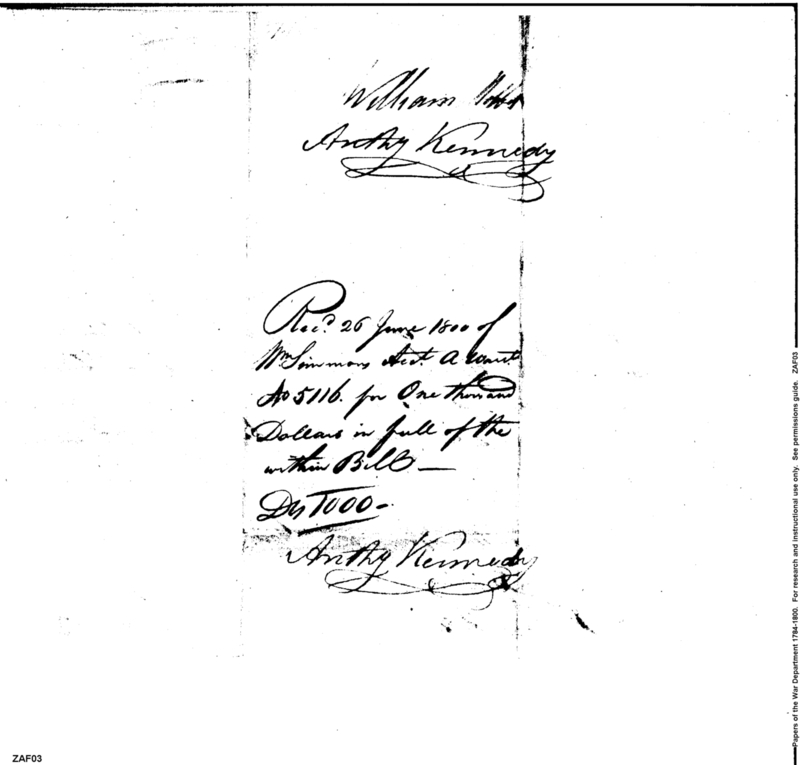 William
Anthy Kennedy
Recd. 26 June 1800 of
Wm Simmons Acct. A warrt.
No 5116. for One thousand
Dollars in full of the
within Bill —
Ds 1000 —
Anthy Kennedy
ZAF03
Papers of the War Department 1784-1800. For research and instructional use only. See permissions guide. ZAF03